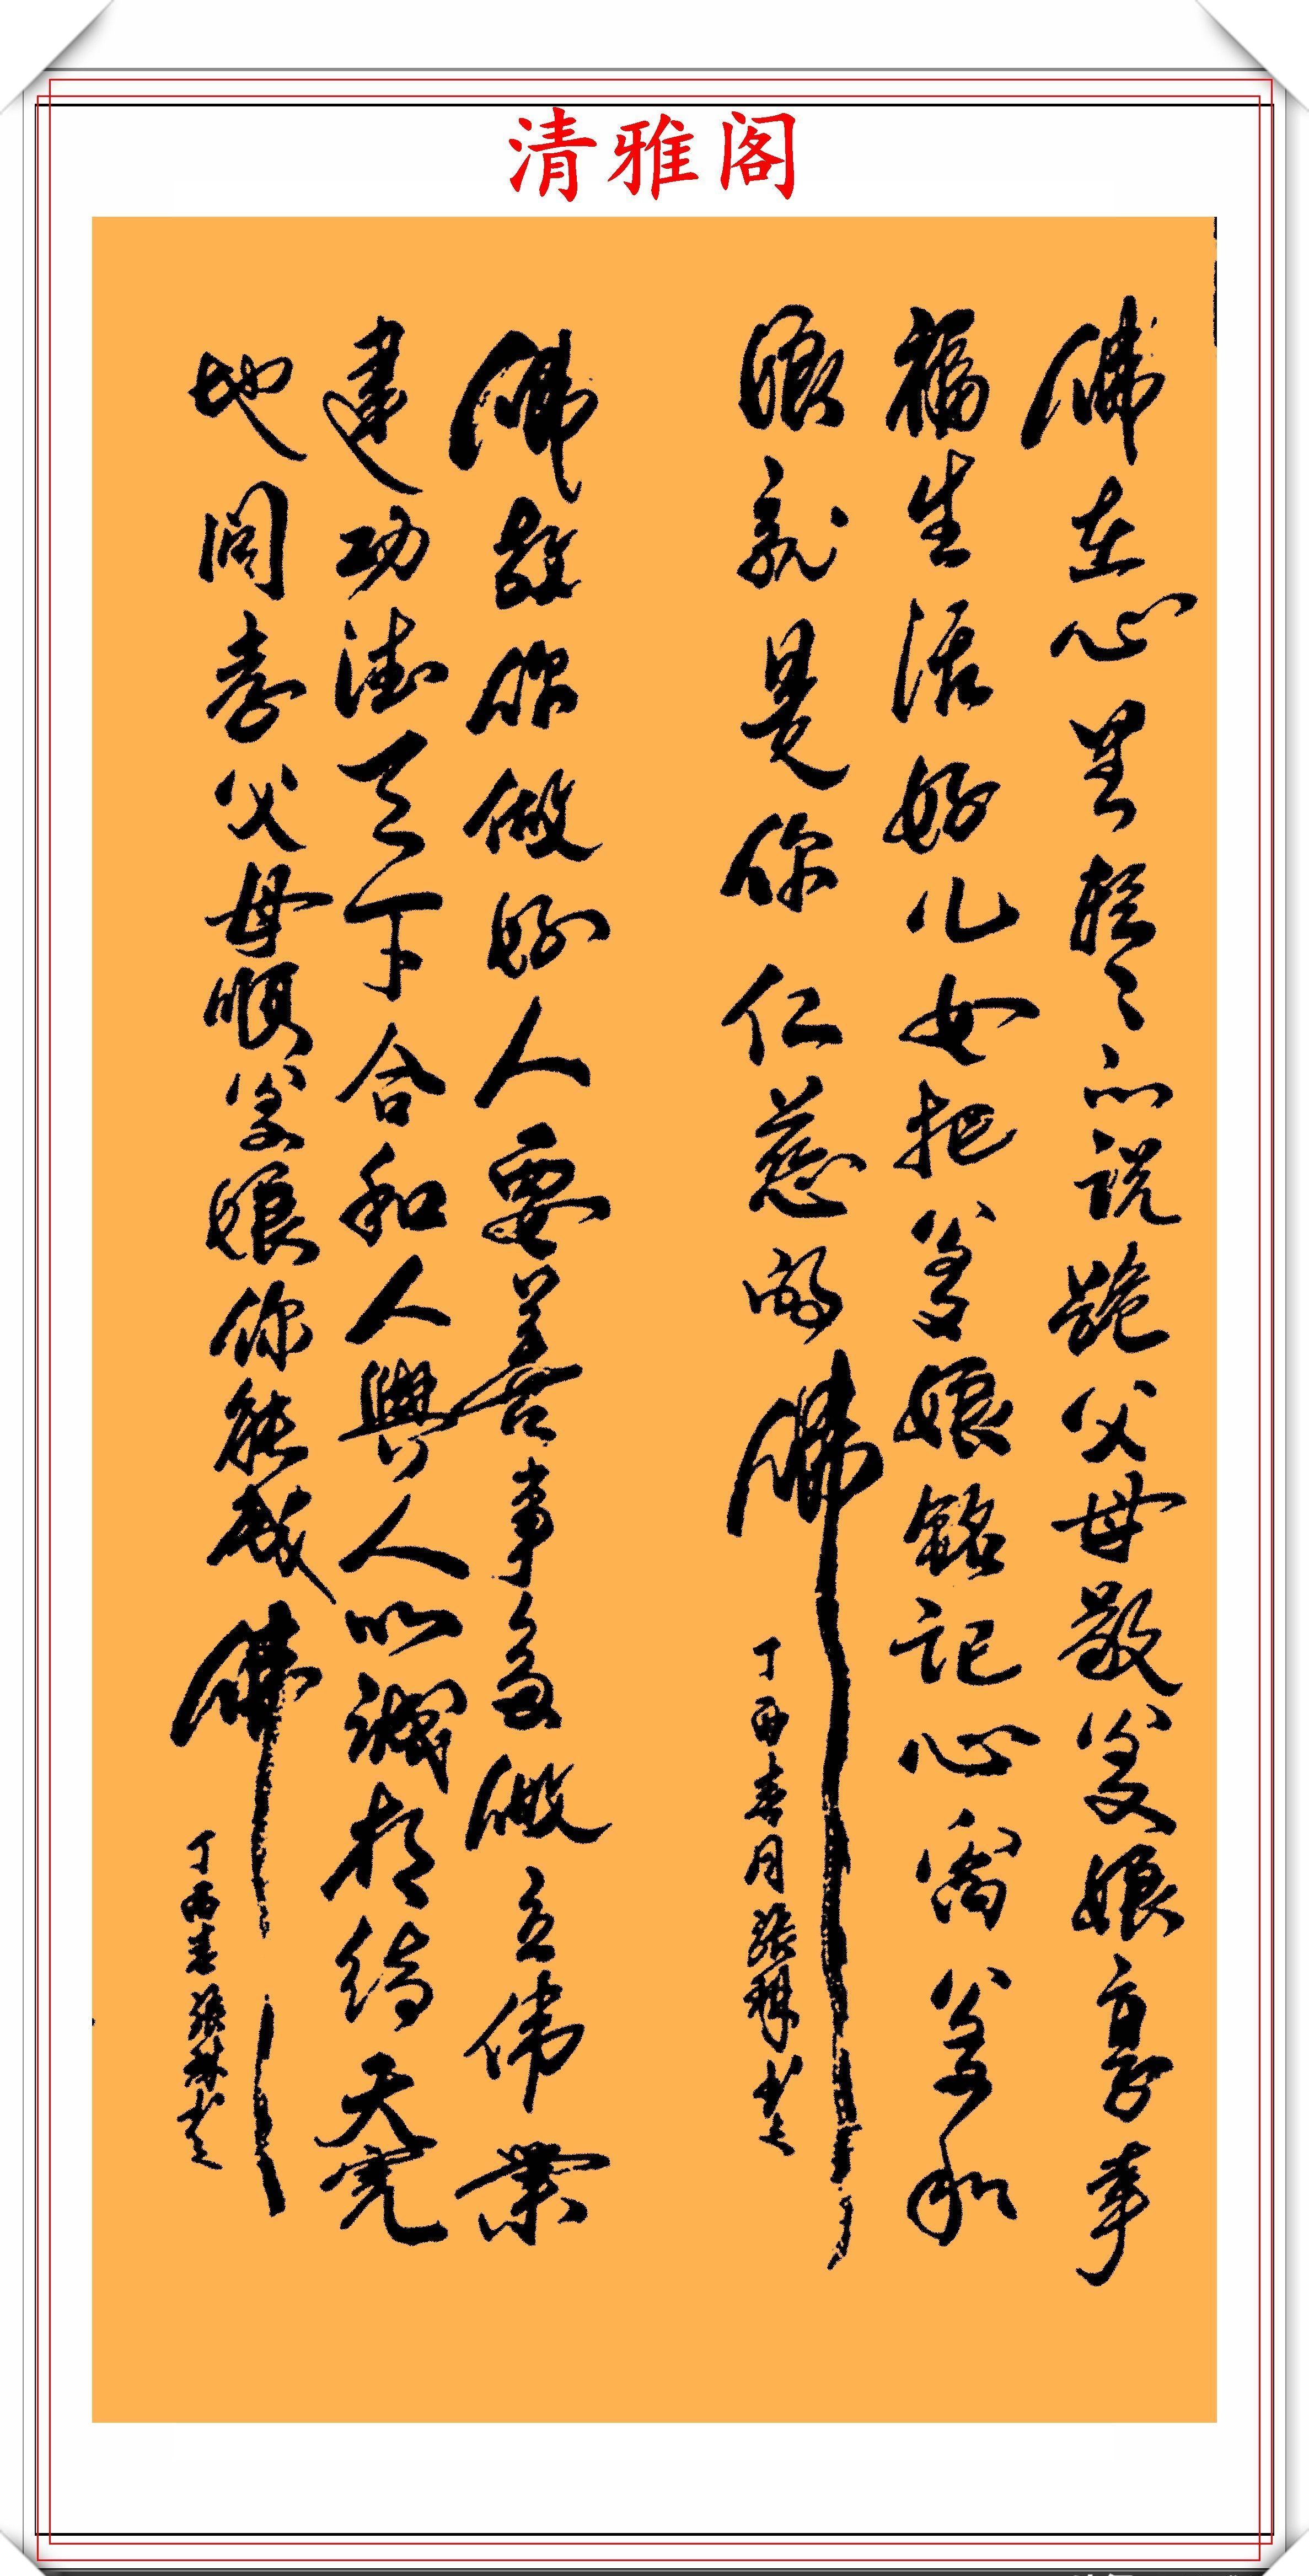 清雅阁
佛在心里轻々的说跪父母敬爹娘享幸
福生活好儿女把爹娘铭记心窝爹和
娘就是你仁慈的佛
丁酉春月张林书
佛教你做好人要善事多做立伟業
建功德天下合和人與人以诚相待天宽
地阔孝父母顺爹娘你能成佛
丁酉春张林书